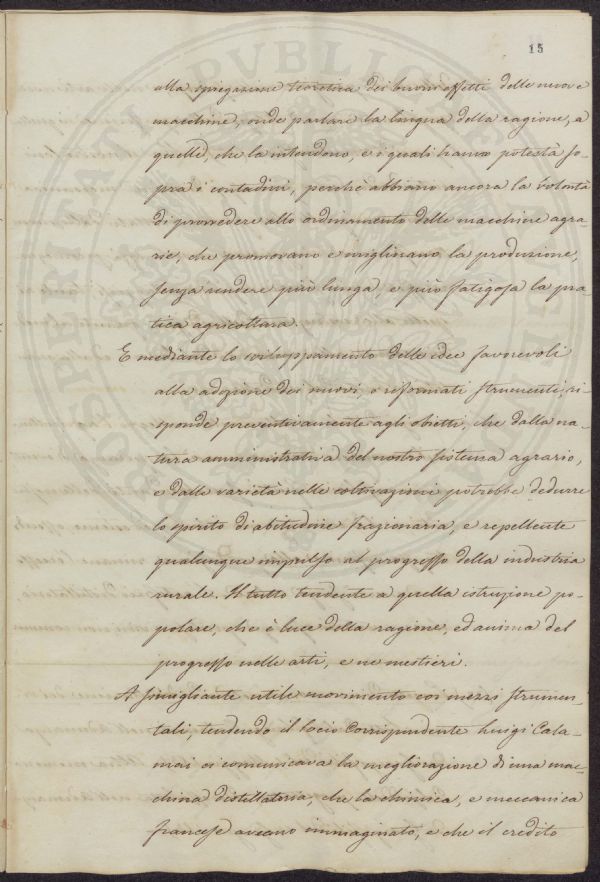 15
alla spiegazione teoretica dei buoni effetti delle nuove
macchine, onde parlare la lingua della ragione, a
quelli, che la intendono, e i quali hanno potestà so-
pra i contadini, perchè abbiano ancora la volontà
di provvedere allo ordinamento delle macchine agra-
rie, che promovano e migliorano la produzione,
senza rendere più lunga, e più fatigosa la pra-
tica agricoltura.
E mediante lo sviluppamento delle idee favorevoli
alla adozione dei nuovi, o riformati strumenti, ri-
sponde preventivamente agli obietti, che dalla na-
tura amministrativa del nostro sistema agrario,
e dalle varietà nelle coltivazioni potrebbe dedurre
lo spirito di abitudine frazionaria, e repellente
qualunque impulso al progresso della industria
rurale. Il tutto tendente a quella istruzione po-
polare, che è luce della ragione, ed anima del
progresso nelle arti, e ne mestieri.
A simigliante utile movimento coi mezzi strumen-
tali, tendendo il Socio Corrispondente Luigi Cala-
mai ci comunicava la megliorazione di una mac-
china distillatoria, che la chimica, e meccanica
francese aveano immaginato, e che il credito